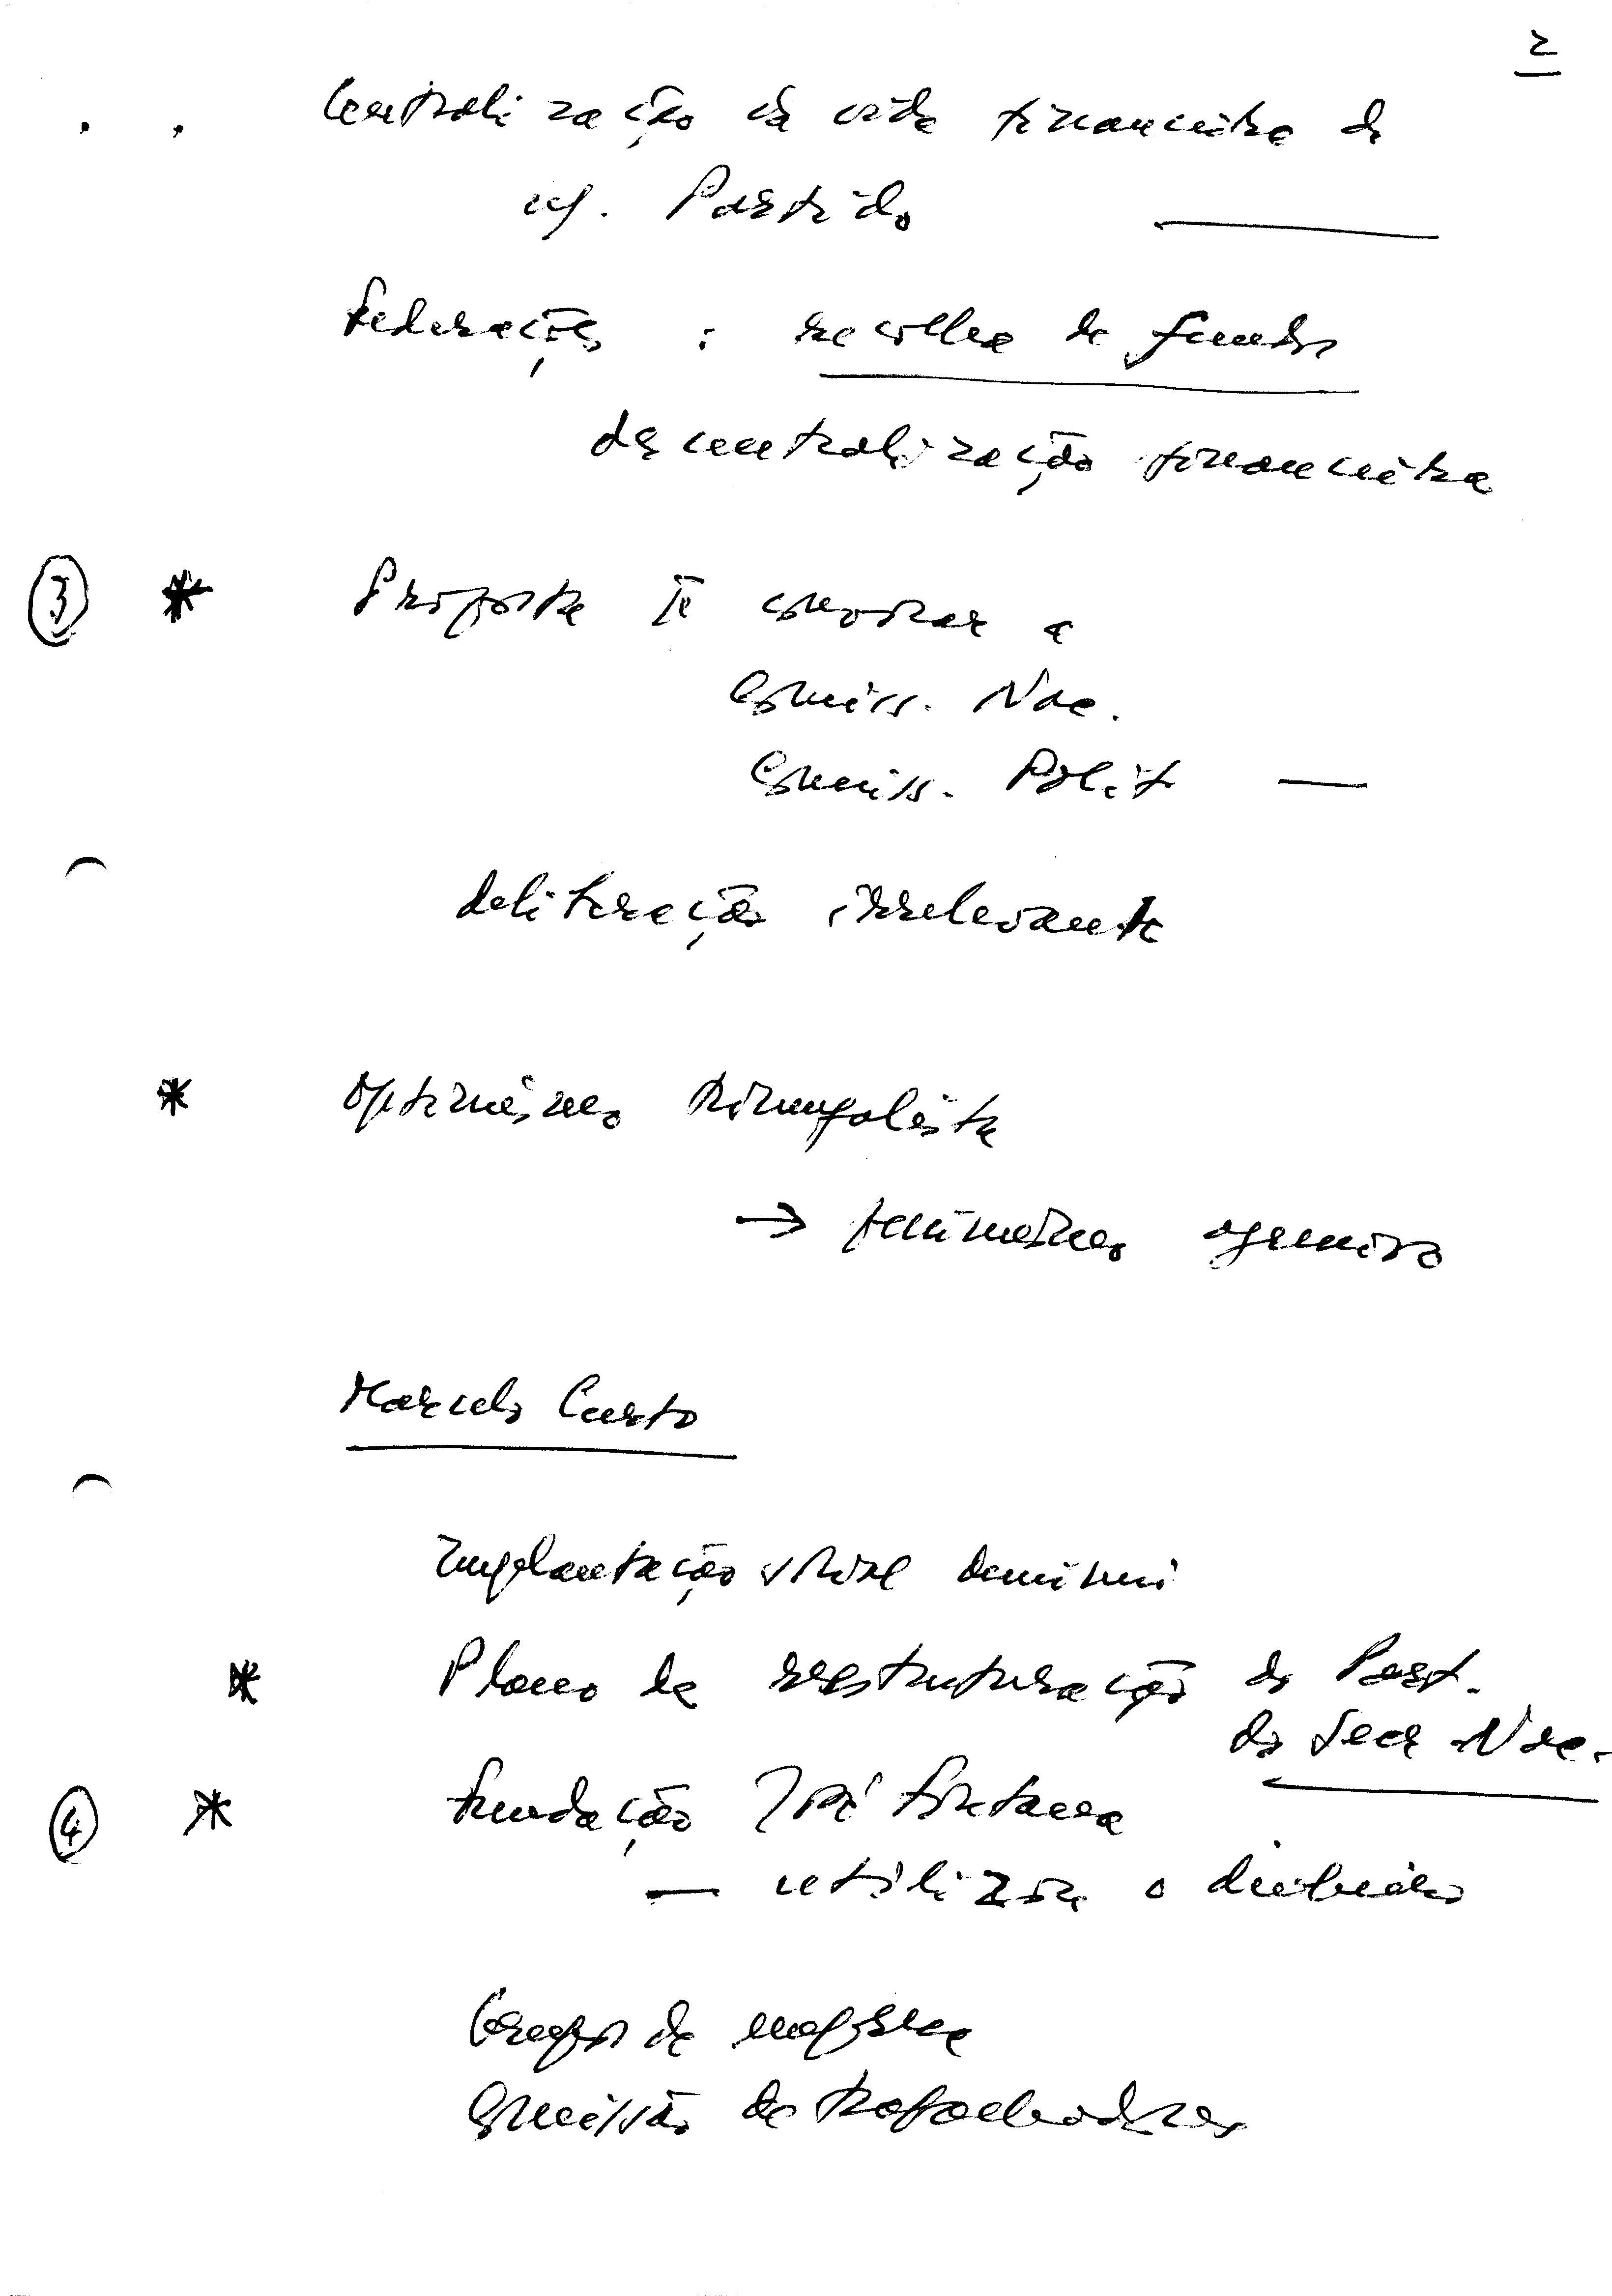 2
Centralização da vida financeira do
Partido
Federações : recolha de fundos
descentralização financeira
3 * Proposta de convocar a
Comiss. Nac.
Comiss. Polit —
deliberação irrelevante
* Optimismo triunfalista
→ fenómeno efémero
Marcelo Curto
Implantação
* Plano de reestruturação do Part.
do Secr Nac.
4 * Fundação José Fontana
— utilizar o dinheiro
Grupos de empresa
Comissão de trabalhadores